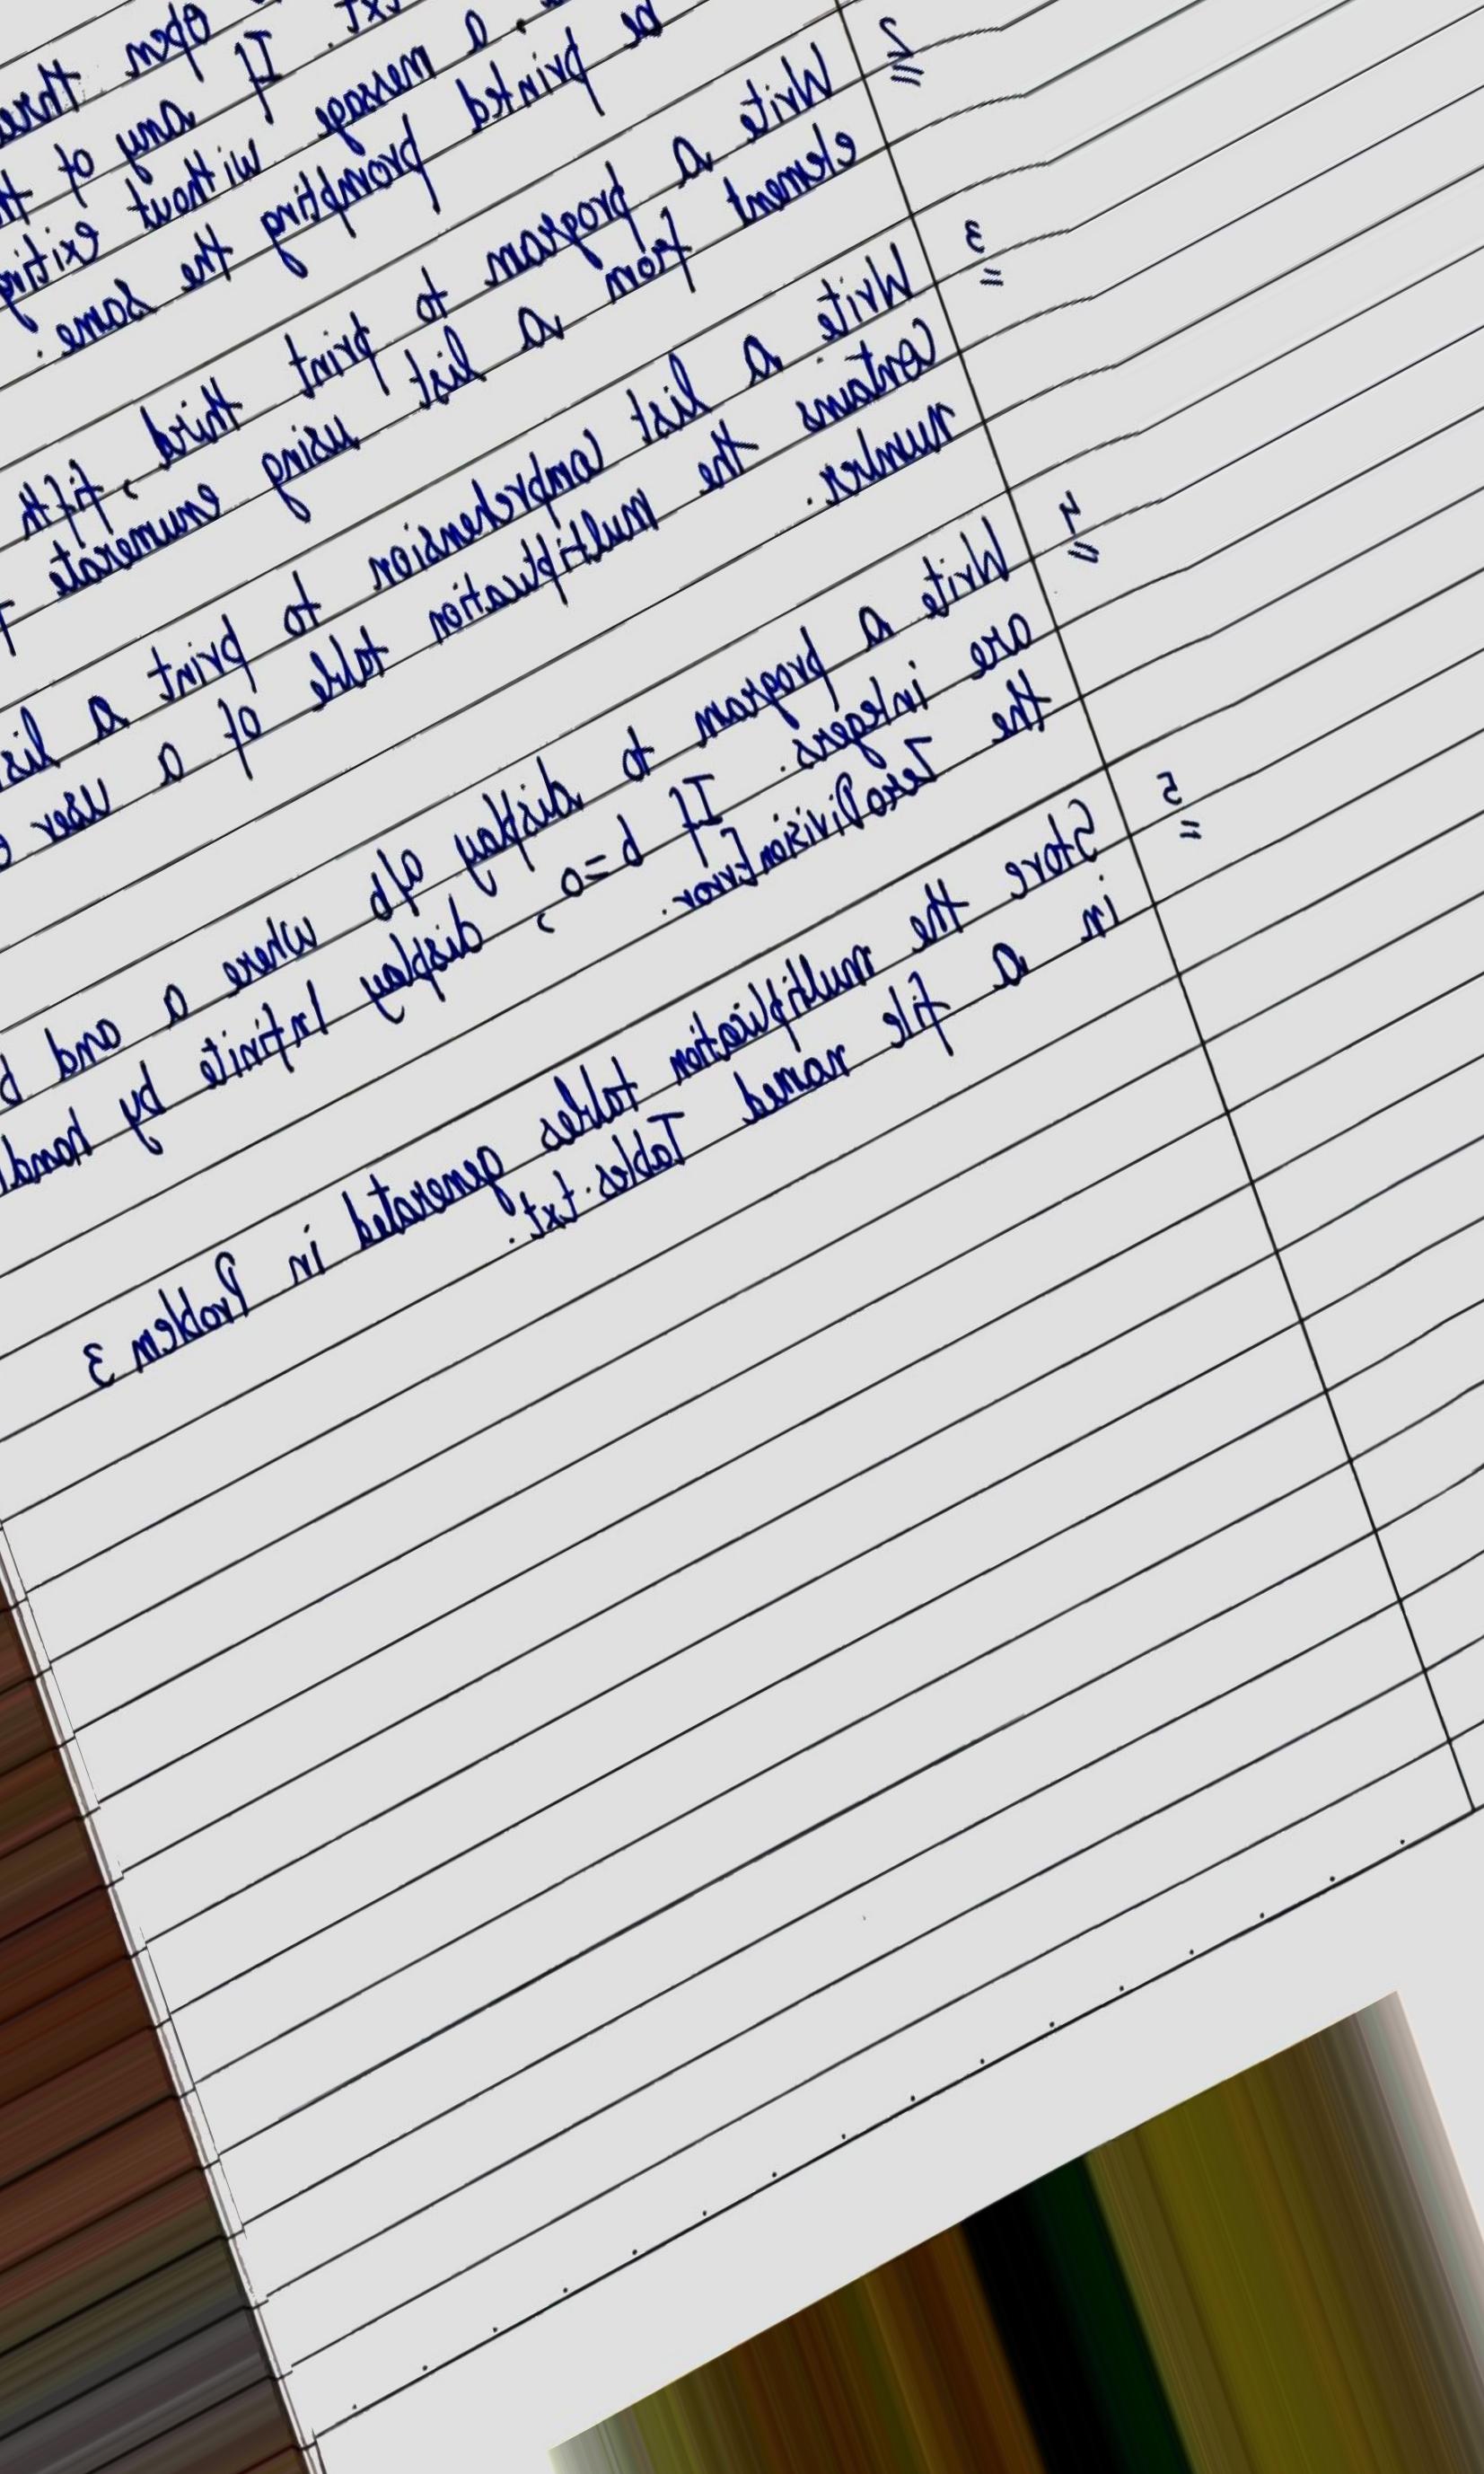 open
txt. If any of
a message without exiting
be printed prompting the same.
2 Write a program to print third, fifth
element from a list using enumerate
3 Write a list comprehension to print a
contains the multiplication table of a user
number.
4 Write a program to display a/b where a and b
are integers. If b=0, display infinite by
the ZeroDivisionError.
5 Store the multiplication tables generated in Problem 3
in a file named Tables.txt.